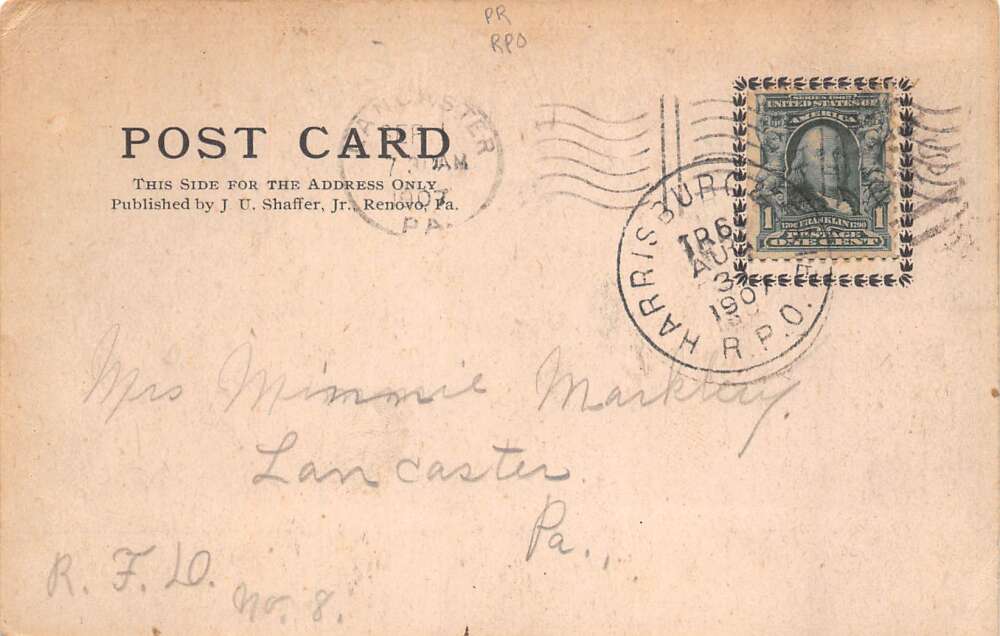 PR
RPO
POST CARD
THIS SIDE FOR THE ADDRESS ONLY
Published by J. U. Shaffer, Jr., Renovo, Pa.
SEP 1
AM
07
PA.
SERIES 1902
UNITED STATES OF
AMERICA
1706 FRANKLIN 1790
1
POSTAGE
ONE CENT
R.P.O.
TR6
AU
3
1907
Mrs Minnie Markley
Lancaster
Pa.,
R. F. D.
No. 8.